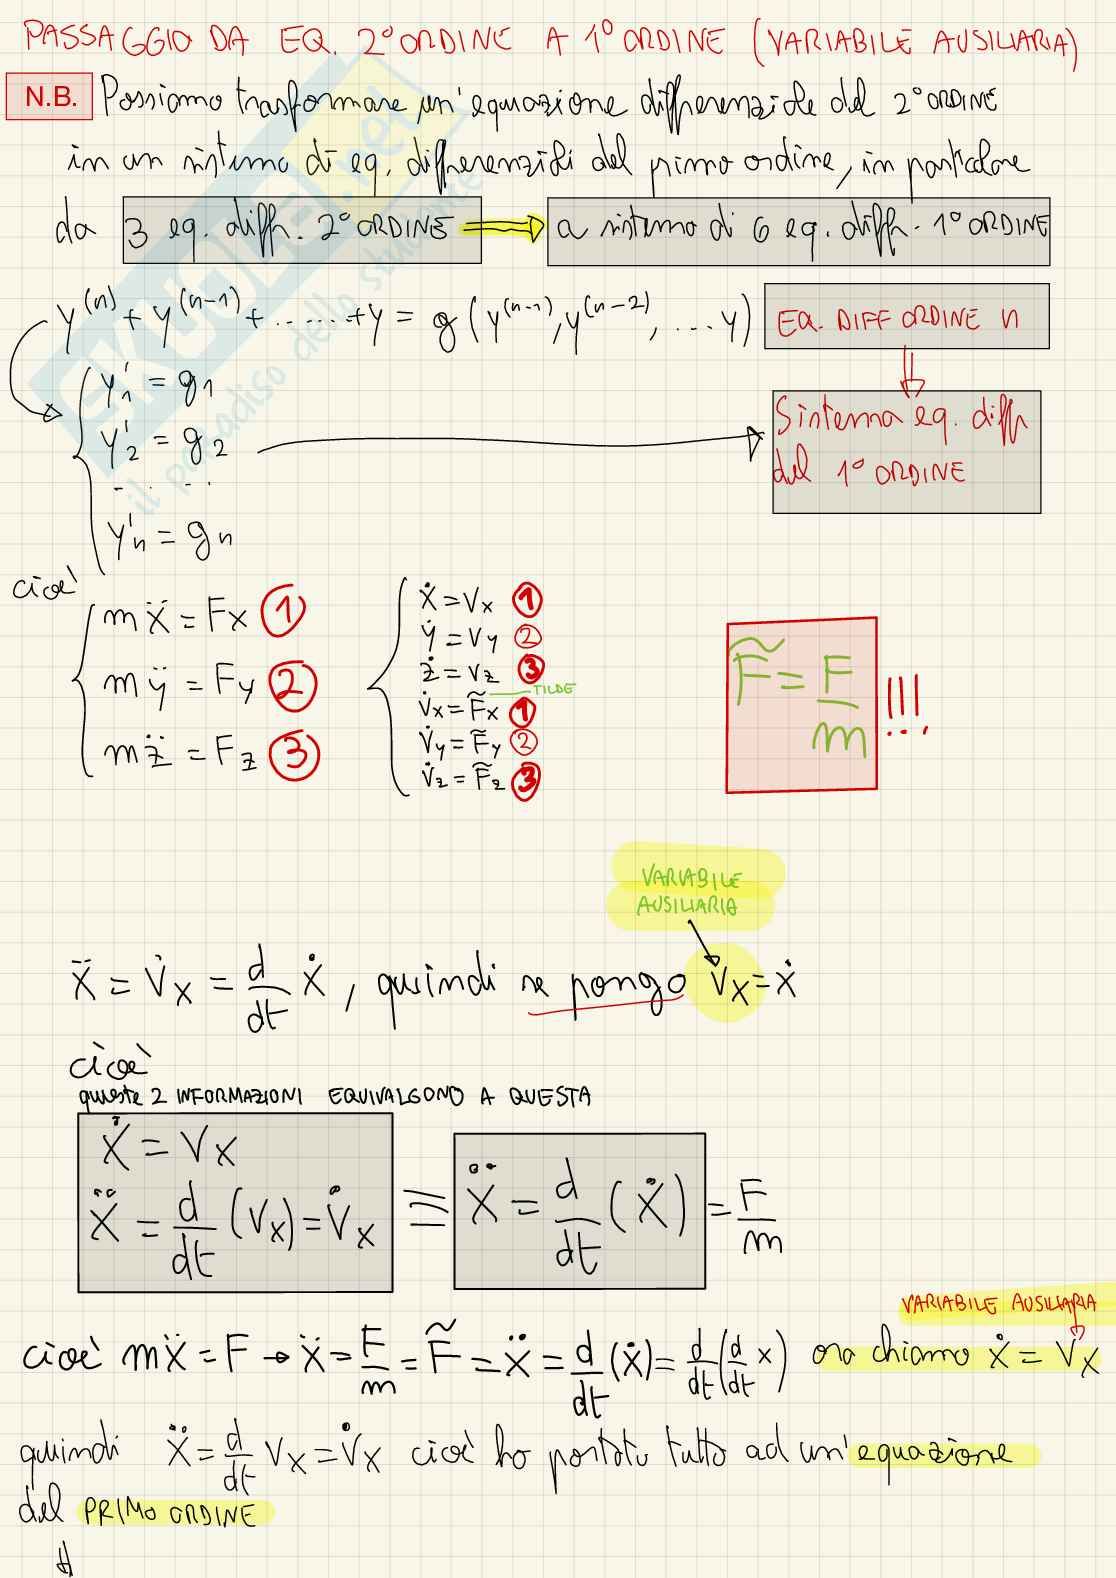 PASSAGGIO DA EQ. 2° ORDINE A 1° ORDINE (VARIABILE AUSILIARIA)
N.B. Possiamo trasformare un'equazione differenziale del 2° ORDINE
in un sistema di eq. differenziali del primo ordine, in particolare
da 3 eq. diff. 2° ORDINE ⟹ a sistema di 6 eq. diff. 1° ORDINE
y⁽ⁿ⁾ + y⁽ⁿ⁻¹⁾ + ...... + y = g (y⁽ⁿ⁻¹⁾, y⁽ⁿ⁻²⁾, ... y) EQ. DIFF ORDINE n
y'₁ = g₁
y'₂ = g₂
. . . .
y'n = gn
Sistema eq. diff
del 1° ORDINE
cioè
mẍ = Fx ①
mÿ = Fy ②
mz̈ = Fz ③
ẋ = Vx ①
ẏ = Vy ②
ż = Vz ③
TILDE
V̇x = F̃x ①
V̇y = F̃y ②
V̇z = F̃z ③
F̃ = F/m !!!
VARIABILE
AUSILIARIA
ẍ = V̇x = d/dt ẋ, quindi se pongo Vx = ẋ
cioè
queste 2 INFORMAZIONI EQUIVALGONO A QUESTA
ẋ = Vx
ẍ = d/dt (Vx) = V̇x ≡ ẍ = d/dt (ẋ) = F/m
VARIABILE AUSILIARIA
cioè mẍ = F → ẍ = F/m = F̃ = ẍ = d/dt (ẋ) = d/dt (d/dt x) ora chiamo ẋ = Vx
quindi ẍ = d/dt Vx = V̇x cioè ho portato tutto ad un'equazione
del PRIMO ORDINE
SKUOLA.net
il paradiso dello studente